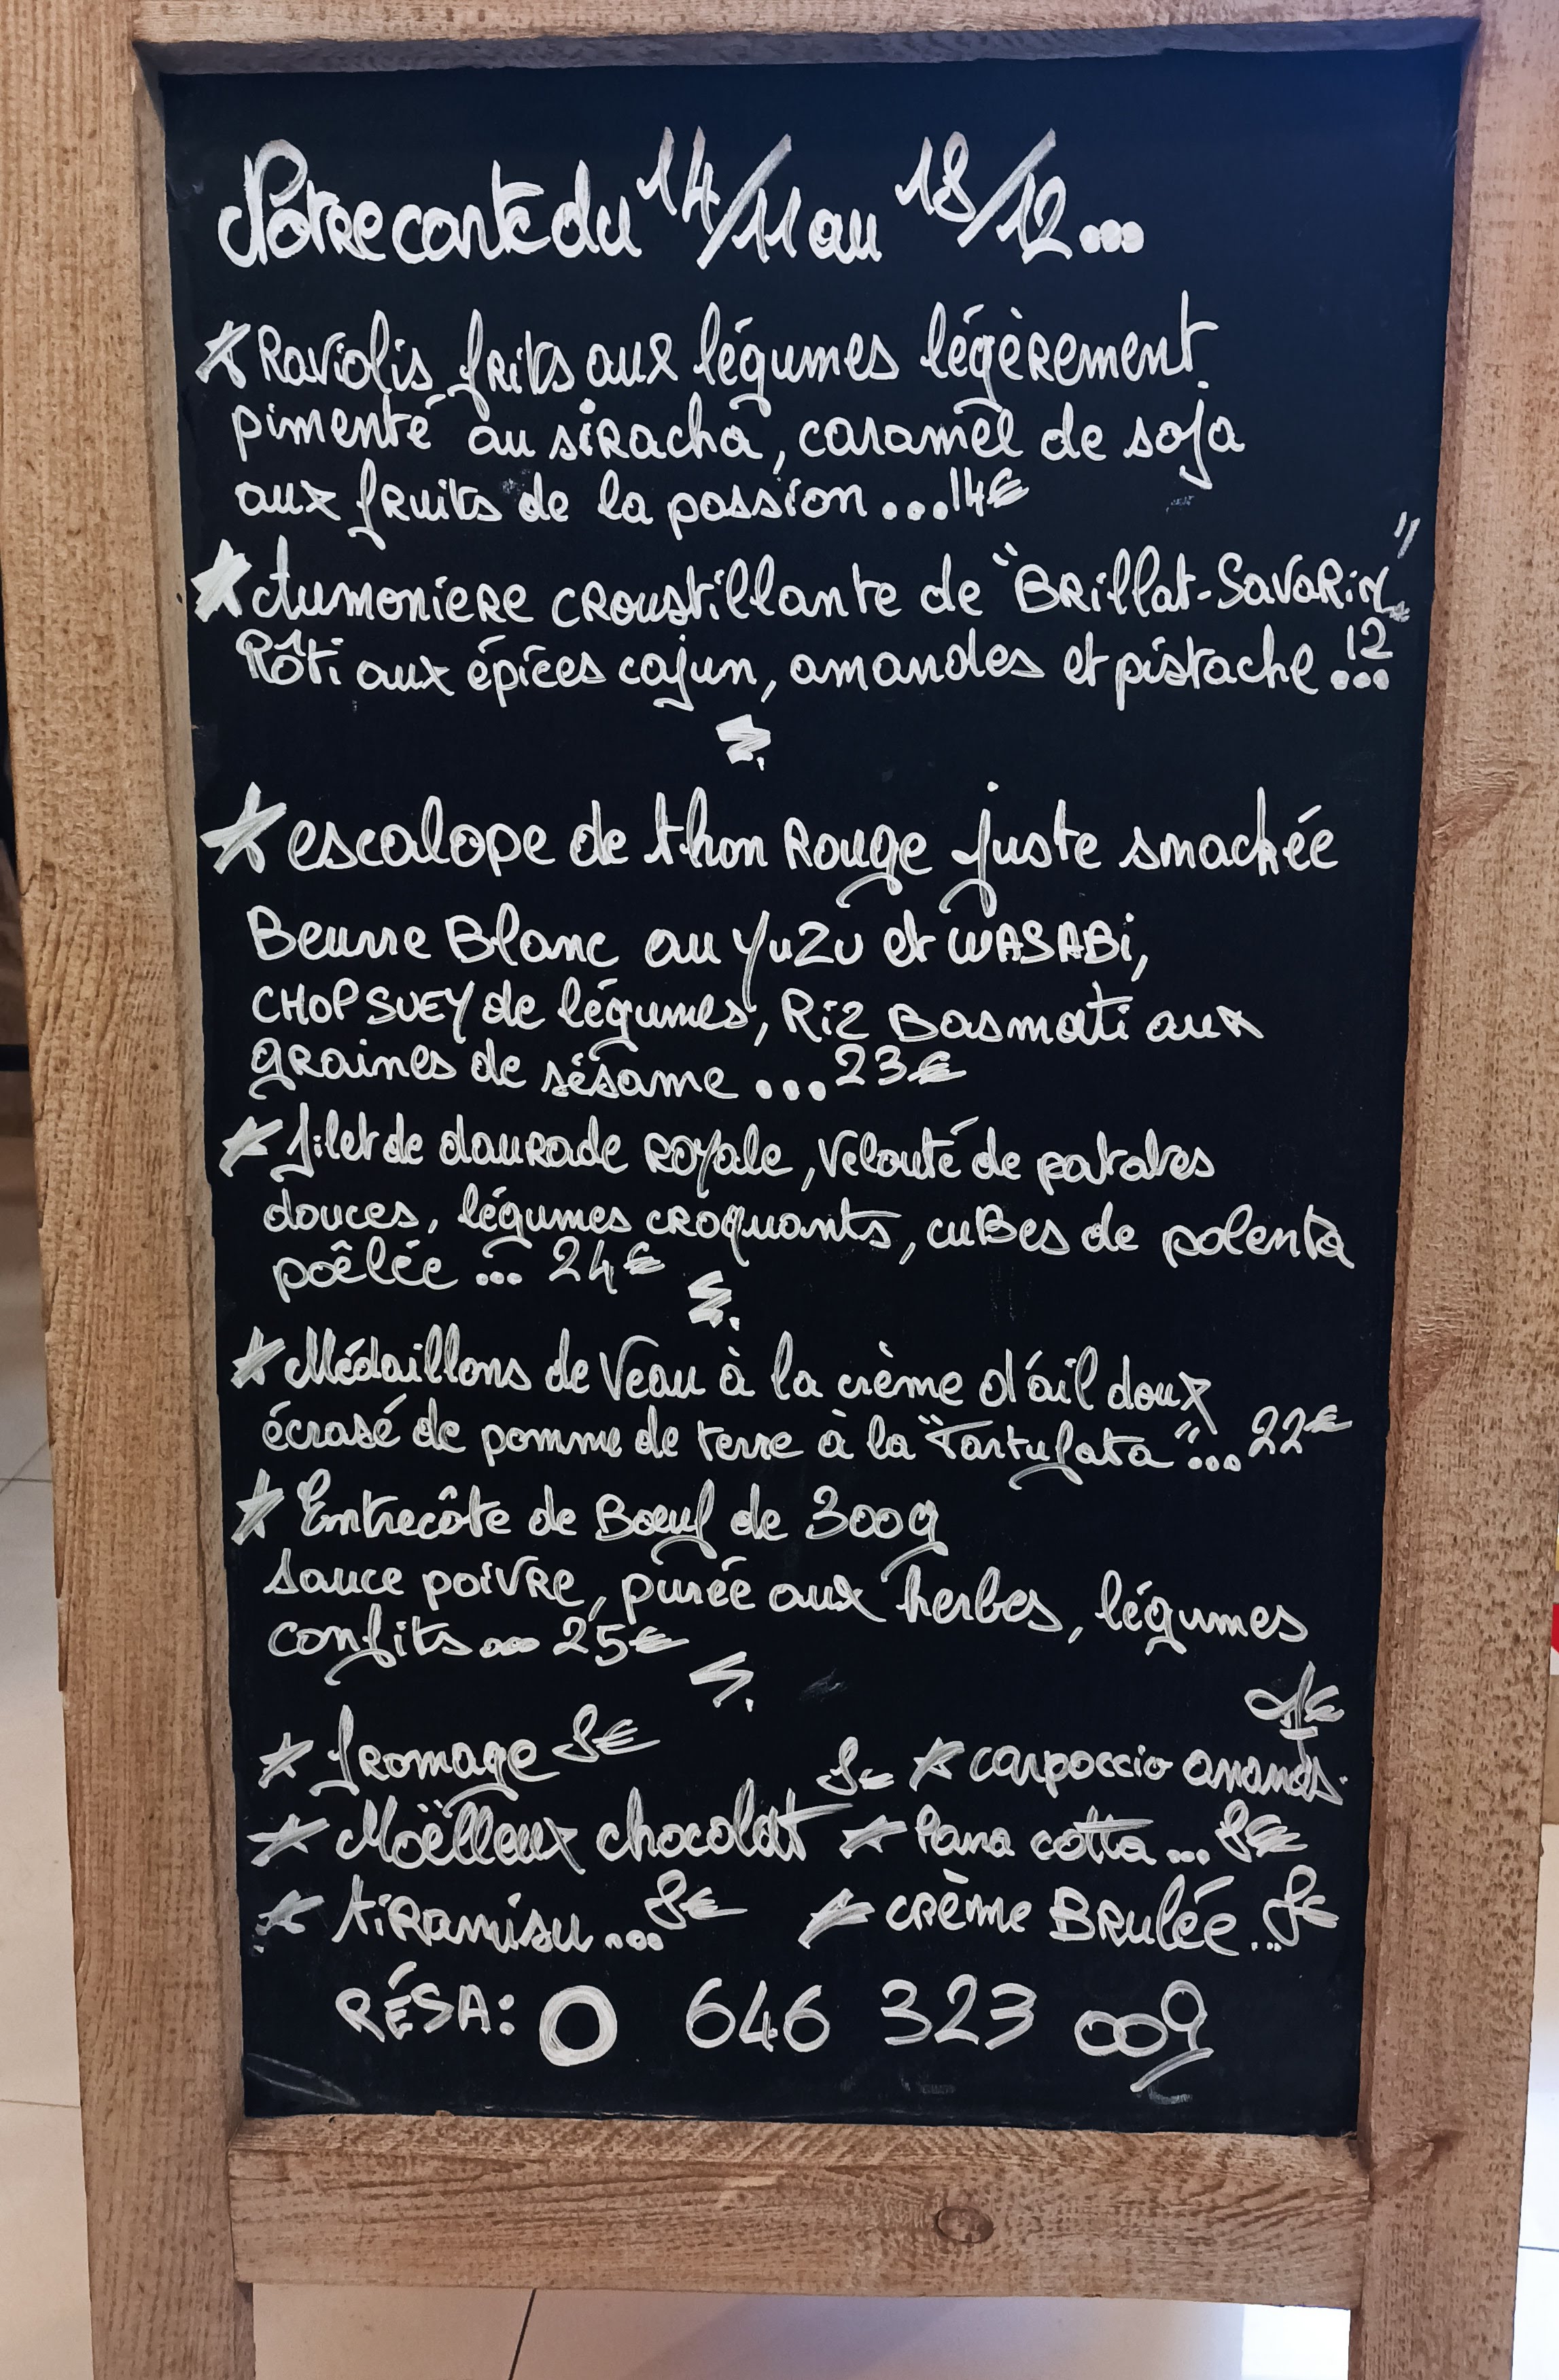 Notre carte du 14/11 au 18/12...
* Raviolis frits aux légumes légèrement
pimenté au siracha, caramel de soja
aux fruits de la passion ... 14€
* Aumoniere croustillante de "Brillat-Savarin"
Rôti aux épices cajun, amandes et pistache ... 12
* escalope de thon Rouge juste smackée
Beurre Blanc au YuZu et WASABi,
CHOP SUEY de légumes, Riz Basmati aux
graines de sésame ... 23€
* filet de daurade royale, velouté de patates
douces, légumes croquants, cubes de polenta
poêlée ... 24€
* Médaillons de Veau à la crème d'ail doux
écrasé de pomme de terre à la "Tartufata" ... 22€
* Entrecôte de Bœuf de 300g
Sauce poivre, purée aux herbes, légumes
confits ... 25€
* fromage 8€
* carpaccio ananas.
* Moëlleux chocolat 8€
* Pana cotta ... 8€
* tiramisu ... 8€
* crème Brulée ... 8€
RÉSA: 0 646 323 009